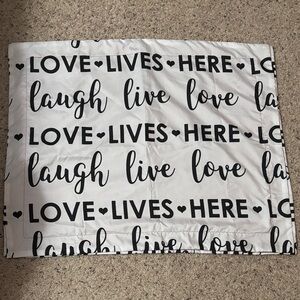 ♥ LOVE ♥ LIVES ♥ HERE ♥ LO
laugh live love la
♥ LOVE ♥ LIVES ♥ HERE ♥ LO
laugh live love la
♥ LOVE ♥ LIVES ♥ HERE ♥ LO
laugh live love la